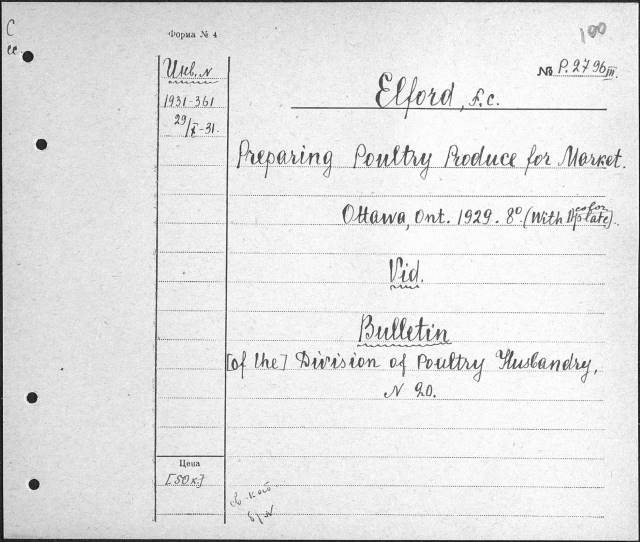 С
сс
Форма № 4
100
Инв. N
1931-361
29/X-31.
№ P.2796 III.
Elford, F.C.
Preparing Poultry Produce for Market.
Ottawa, Ont. 1929. 8° (With color plate).
Vid.
Bulletin
[of the] Division of Poultry Husbandry,
N 20.
Цена
[50 к.]
б/N